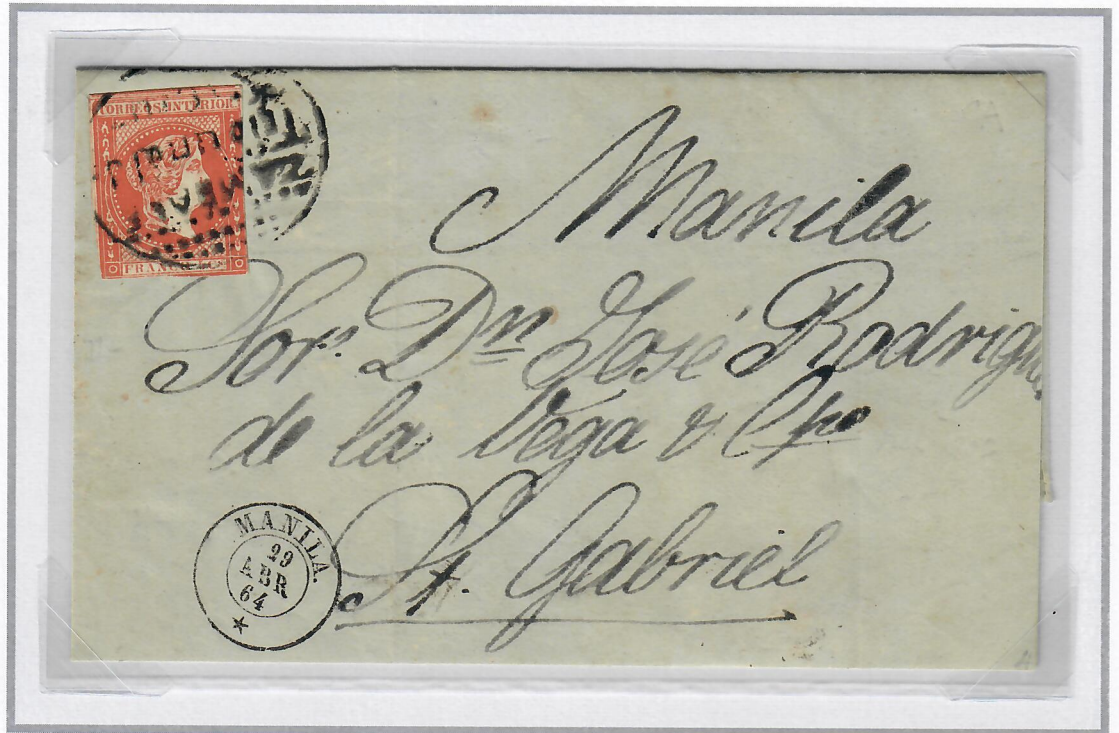 CORREOS INTERIOR
FRANCO
Manila
Sor. Dn José Rodrigue
de la Vega & Cpo
St. Gabriel
MANILA.
29
ABR
64